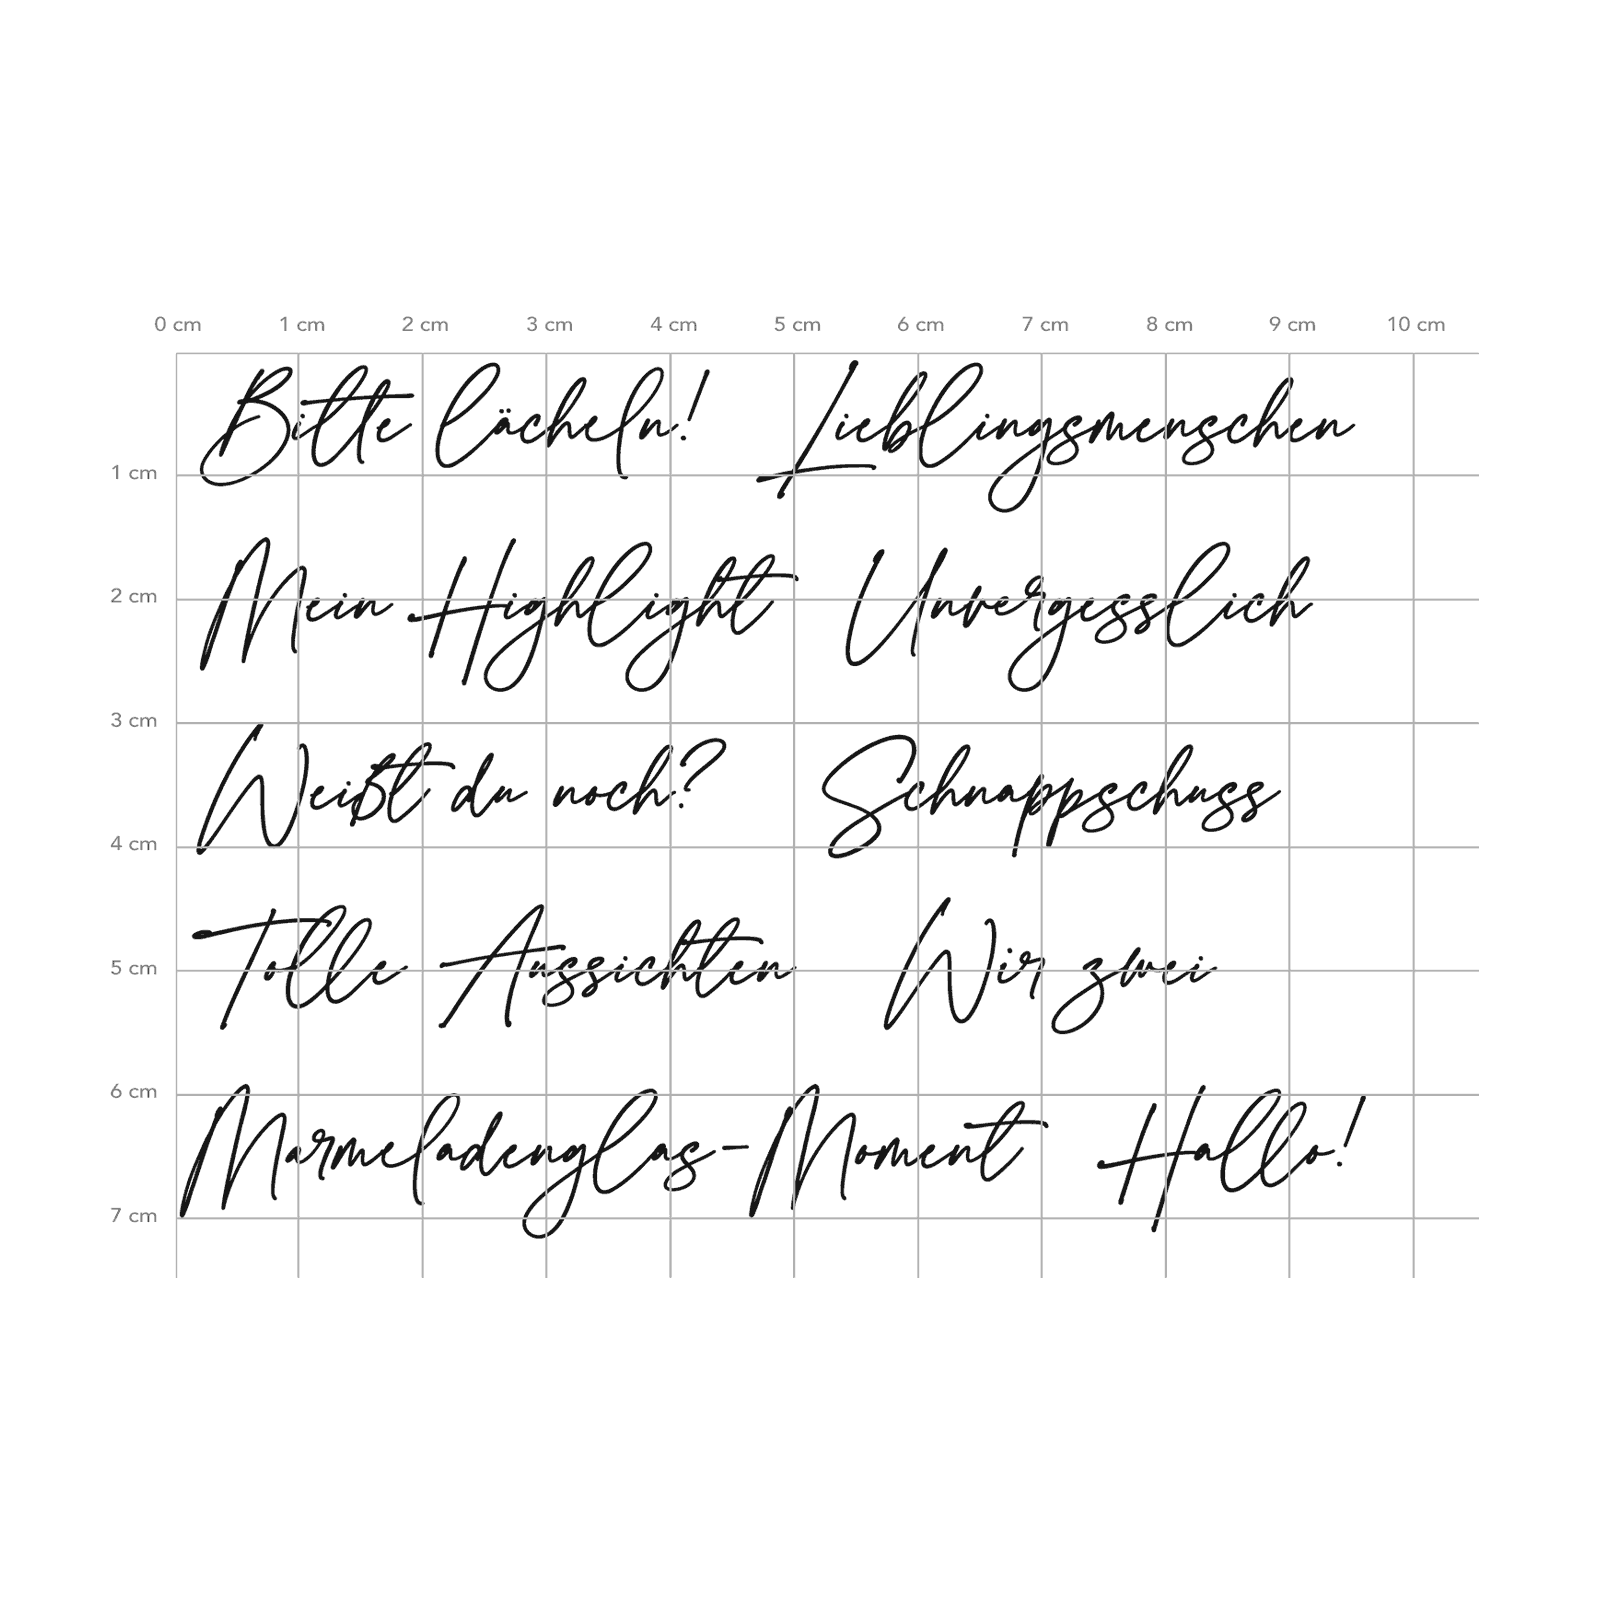 0 cm 1 cm 2 cm 3 cm 4 cm 5 cm 6 cm 7 cm 8 cm 9 cm 10 cm
Bitte lächeln! Lieblingsmenschen
1 cm
Mein Highlight Unvergesslich
2 cm
3 cm
Weißt du noch? Schnappschuss
4 cm
Tolle Aussichten Wir zwei
5 cm
6 cm
Marmeladenglas-Moment Hallo!
7 cm